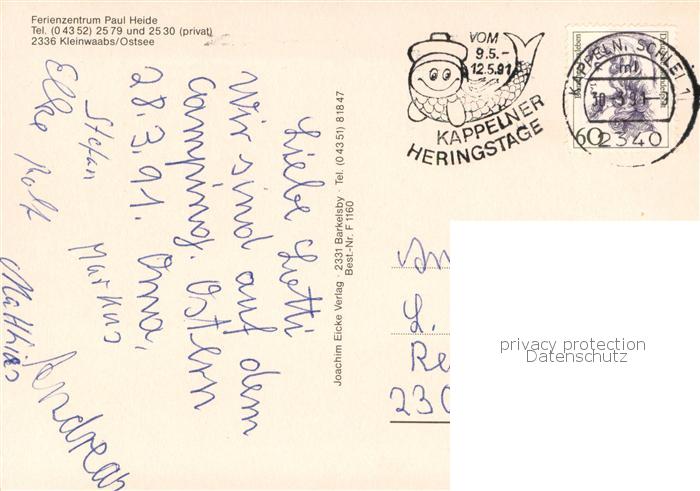 Ferienzentrum Paul Heide
Tel. (0 43 52) 25 79 und 25 30 (privat)
2336 Kleinwaabs/Ostsee
VOM
9.5.-
12.5.91
KAPPELNER
HERINGSTAGE
KAPPELN, SCHLEI 1
ml
2340
60
Liebe Lotti
Wir sind auf dem
Camping. Ostern
28.3.91. Oma,
Stefan Markus
Elke Rolf Matthias
Andreas
Joachim Eicke Verlag · 2331 Barkelsby · Tel. (0 43 51) 81847
Best.-Nr. F 1160
An
L.
Re
230
privacy protection
Datenschutz